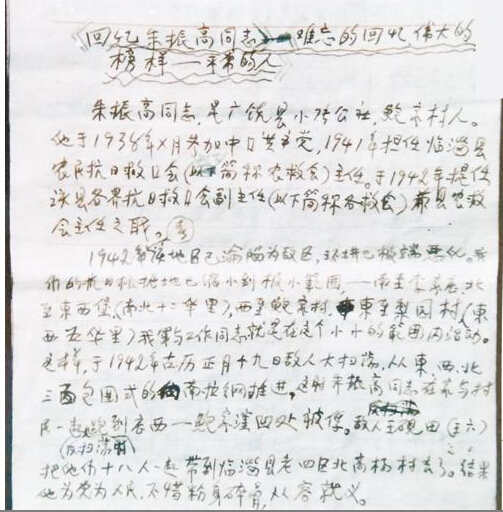 回忆朱振高同志——难忘的回忆伟大的
榜样——平常的人
朱振高同志,是广饶县小张公社,鲍家村人。
他于1938年×月参加中口共产党,1941年担任临淄县
农民抗日救口会(以下简称农救会)主任。于1942年提任
该县各界抗日救口会副主任(以下简称各救会)兼县农救
会主任之职。
1942年该地区已沦陷为敌区,环境已极端恶化。我
们的抗日根据地已缩小到极小范围,——南至李寨,北
至東西堡,(南北十二华里),西至鲍家村,東至梨园村,(東
西五华里)我军与工作同志就是在这个小小的範围内活动。
这样,于1942年古历正月十九日敌人大扫荡,从東、西、北
三面包围式的向南拉網推进,这时朱振高同志在家与村
民一起跑到村西——鲍家洼凹处被俘。敌人至砚田(王六)
(反扫荡时)
把他们十八人一起带到临淄县老四区北高杨村去了。结果
他为党为人民,不惜粉身碎骨,从容就义。